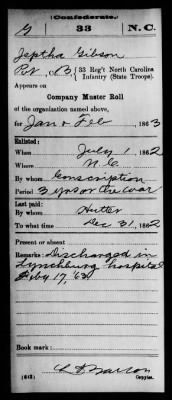 Confederate.
G 33 N.C.
Jeptha Gibson
Pvt, Co. B, 33 Reg't North Carolina
Infantry (State Troops).
Appears on
Company Muster Roll
of the organization named above,
for Jan & Feb, 1863
Enlisted:
When July 1, 1862
Where N.C.
By whom Conscription
Period 3 yrs or the war
Last paid:
By whom Hutter
To what time Dec 31, 1862
Present or absent
Remarks: Discharged in
Lynchburg hospital
Feby 17, 63
Book mark:
(642) Copyist.